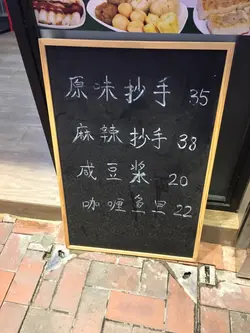 原味抄手 35
麻辣抄手 38
咸豆漿 20
咖喱魚旦 22